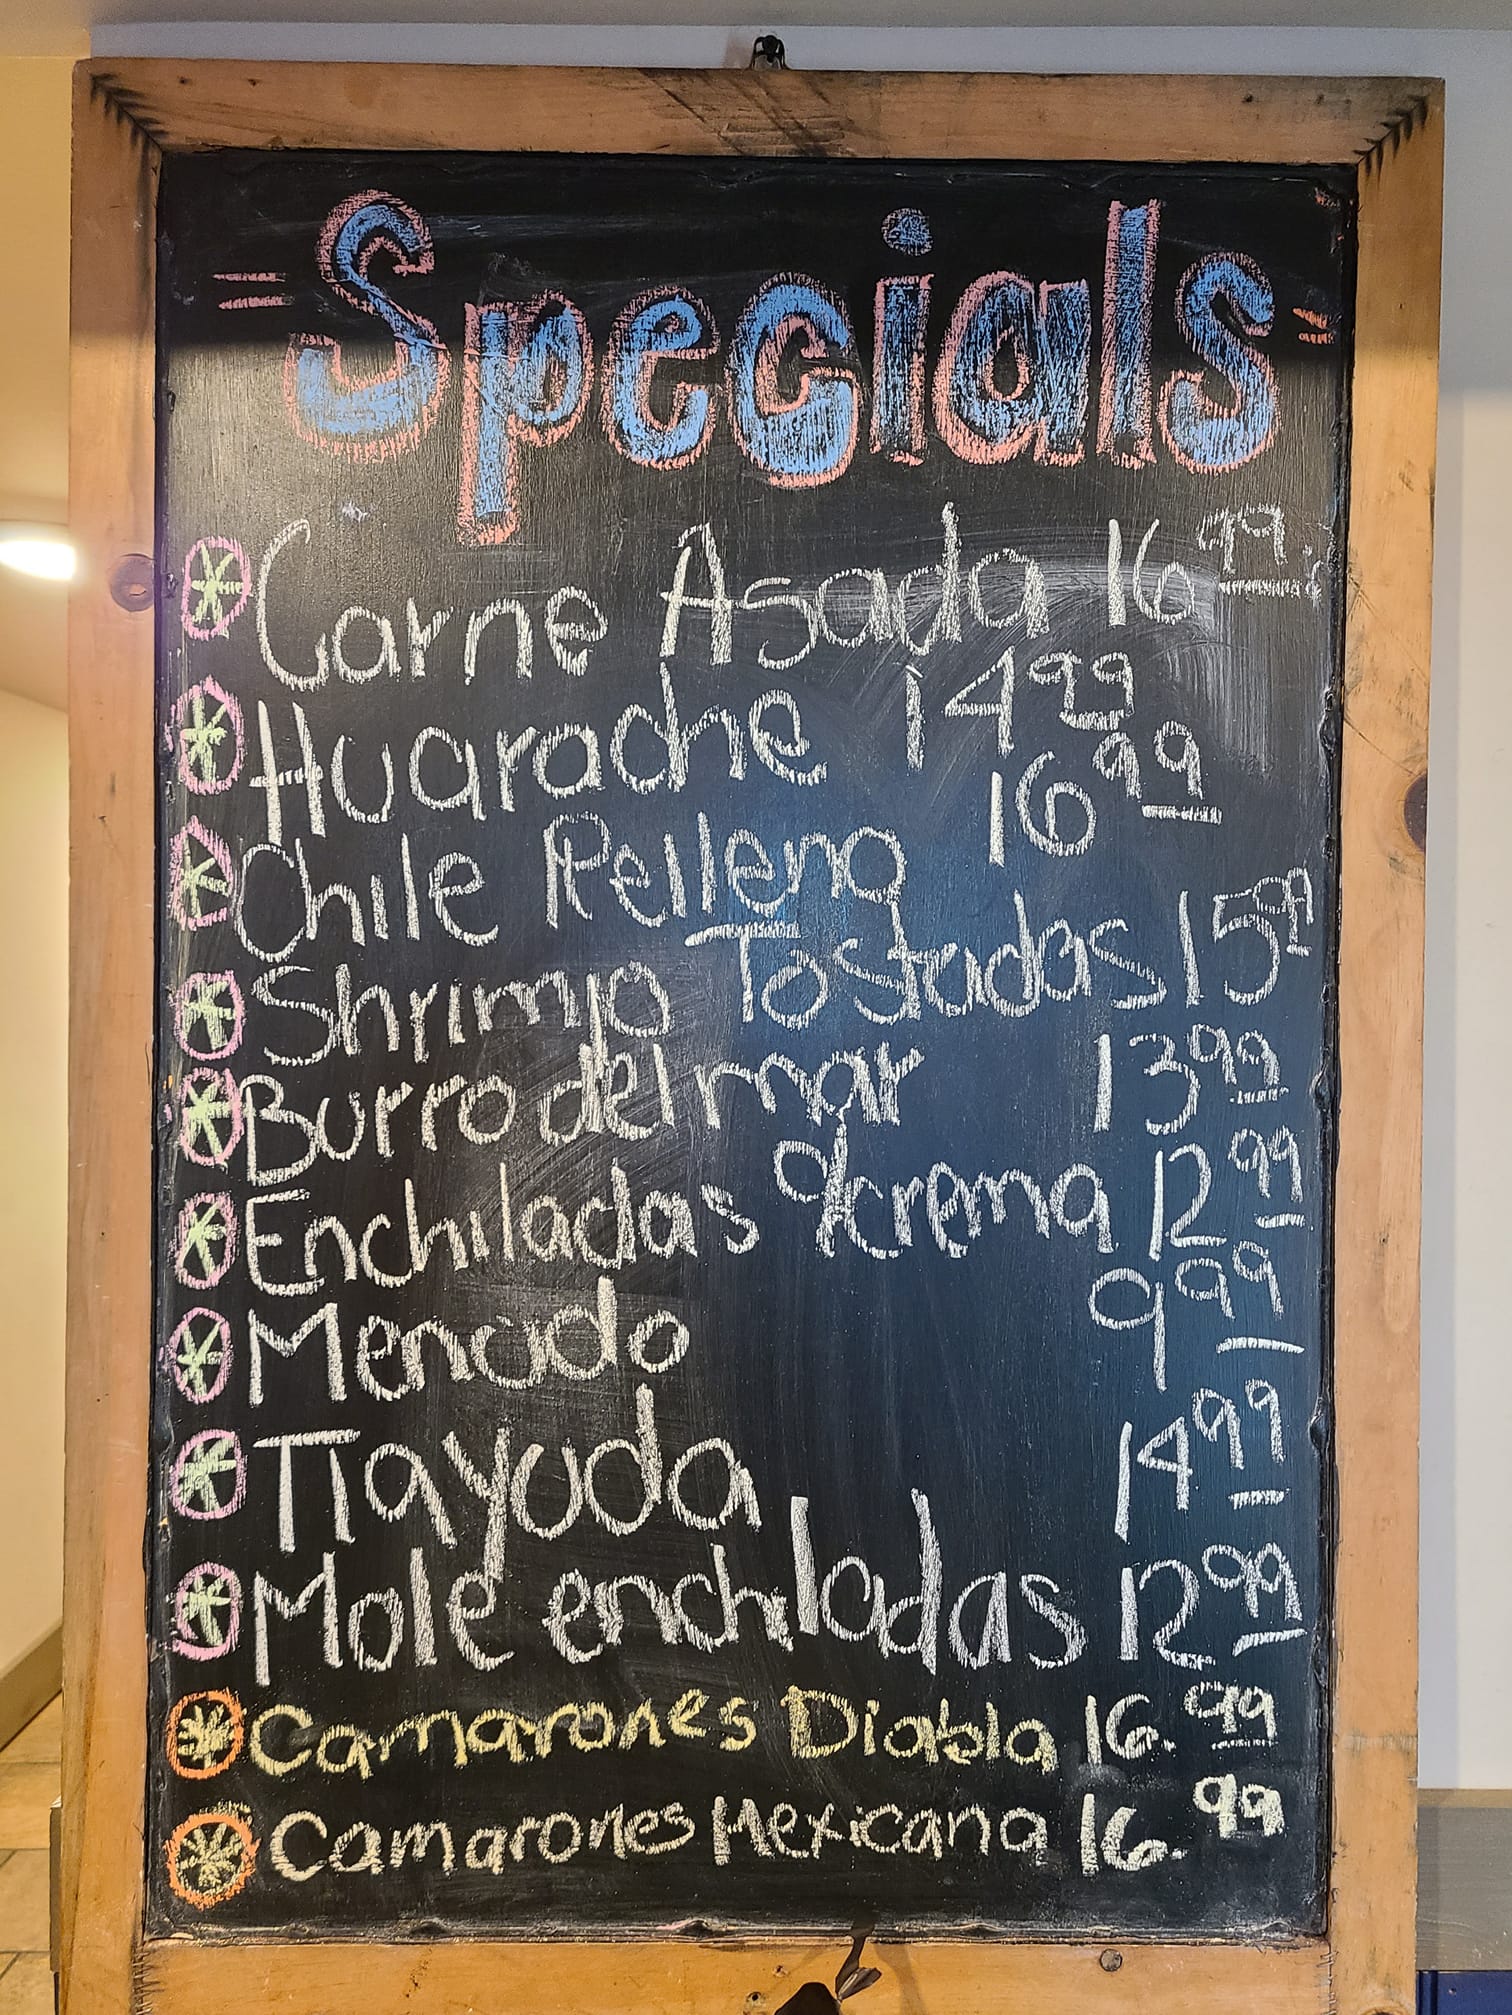 = Specials =
Carne Asada 16.99
Huarache 14.99
Chile Rellena 16.99
Shrimp Tostadas 15.99
Burro del mar 13.99
Enchiladas crema 12.99
Menudo 9.99
Tlayuda 14.99
Mole enchiladas 12.99
Camarones Diabla 16.99
Camarones Mexicana 16.99